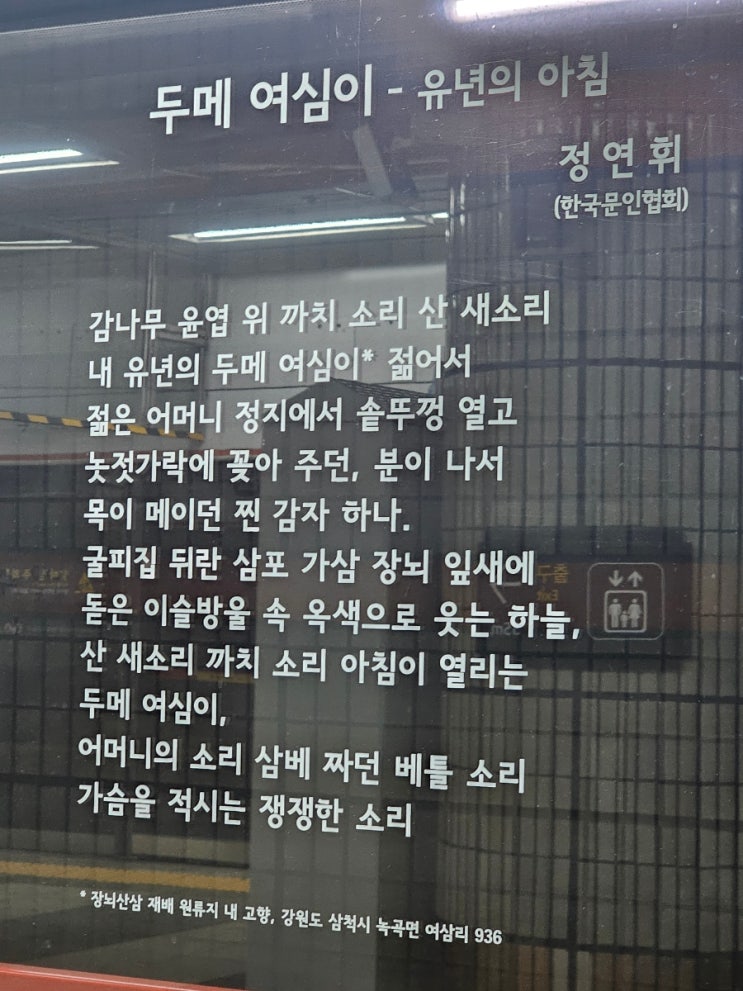 두메 여심이 - 유년의 아침
정연휘
(한국문인협회)
감나무 윤엽 위 까치 소리 산 새소리
내 유년의 두메 여심이* 젊어서
젊은 어머니 정지에서 솥뚜껑 열고
놋젓가락에 꽂아 주던, 분이 나서
목이 메이던 찐 감자 하나.
굴피집 뒤란 삼포 가삼 장뇌 잎새에
돋은 이슬방울 속 옥색으로 웃는 하늘,
산 새소리 까치 소리 아침이 열리는
두메 여심이,
어머니의 소리 삼베 짜던 베틀 소리
가슴을 적시는 쟁쟁한 소리
* 장뇌산삼 재배 원류지 내 고향, 강원도 삼척시 녹곡면 여삼리 936
출구
Exit